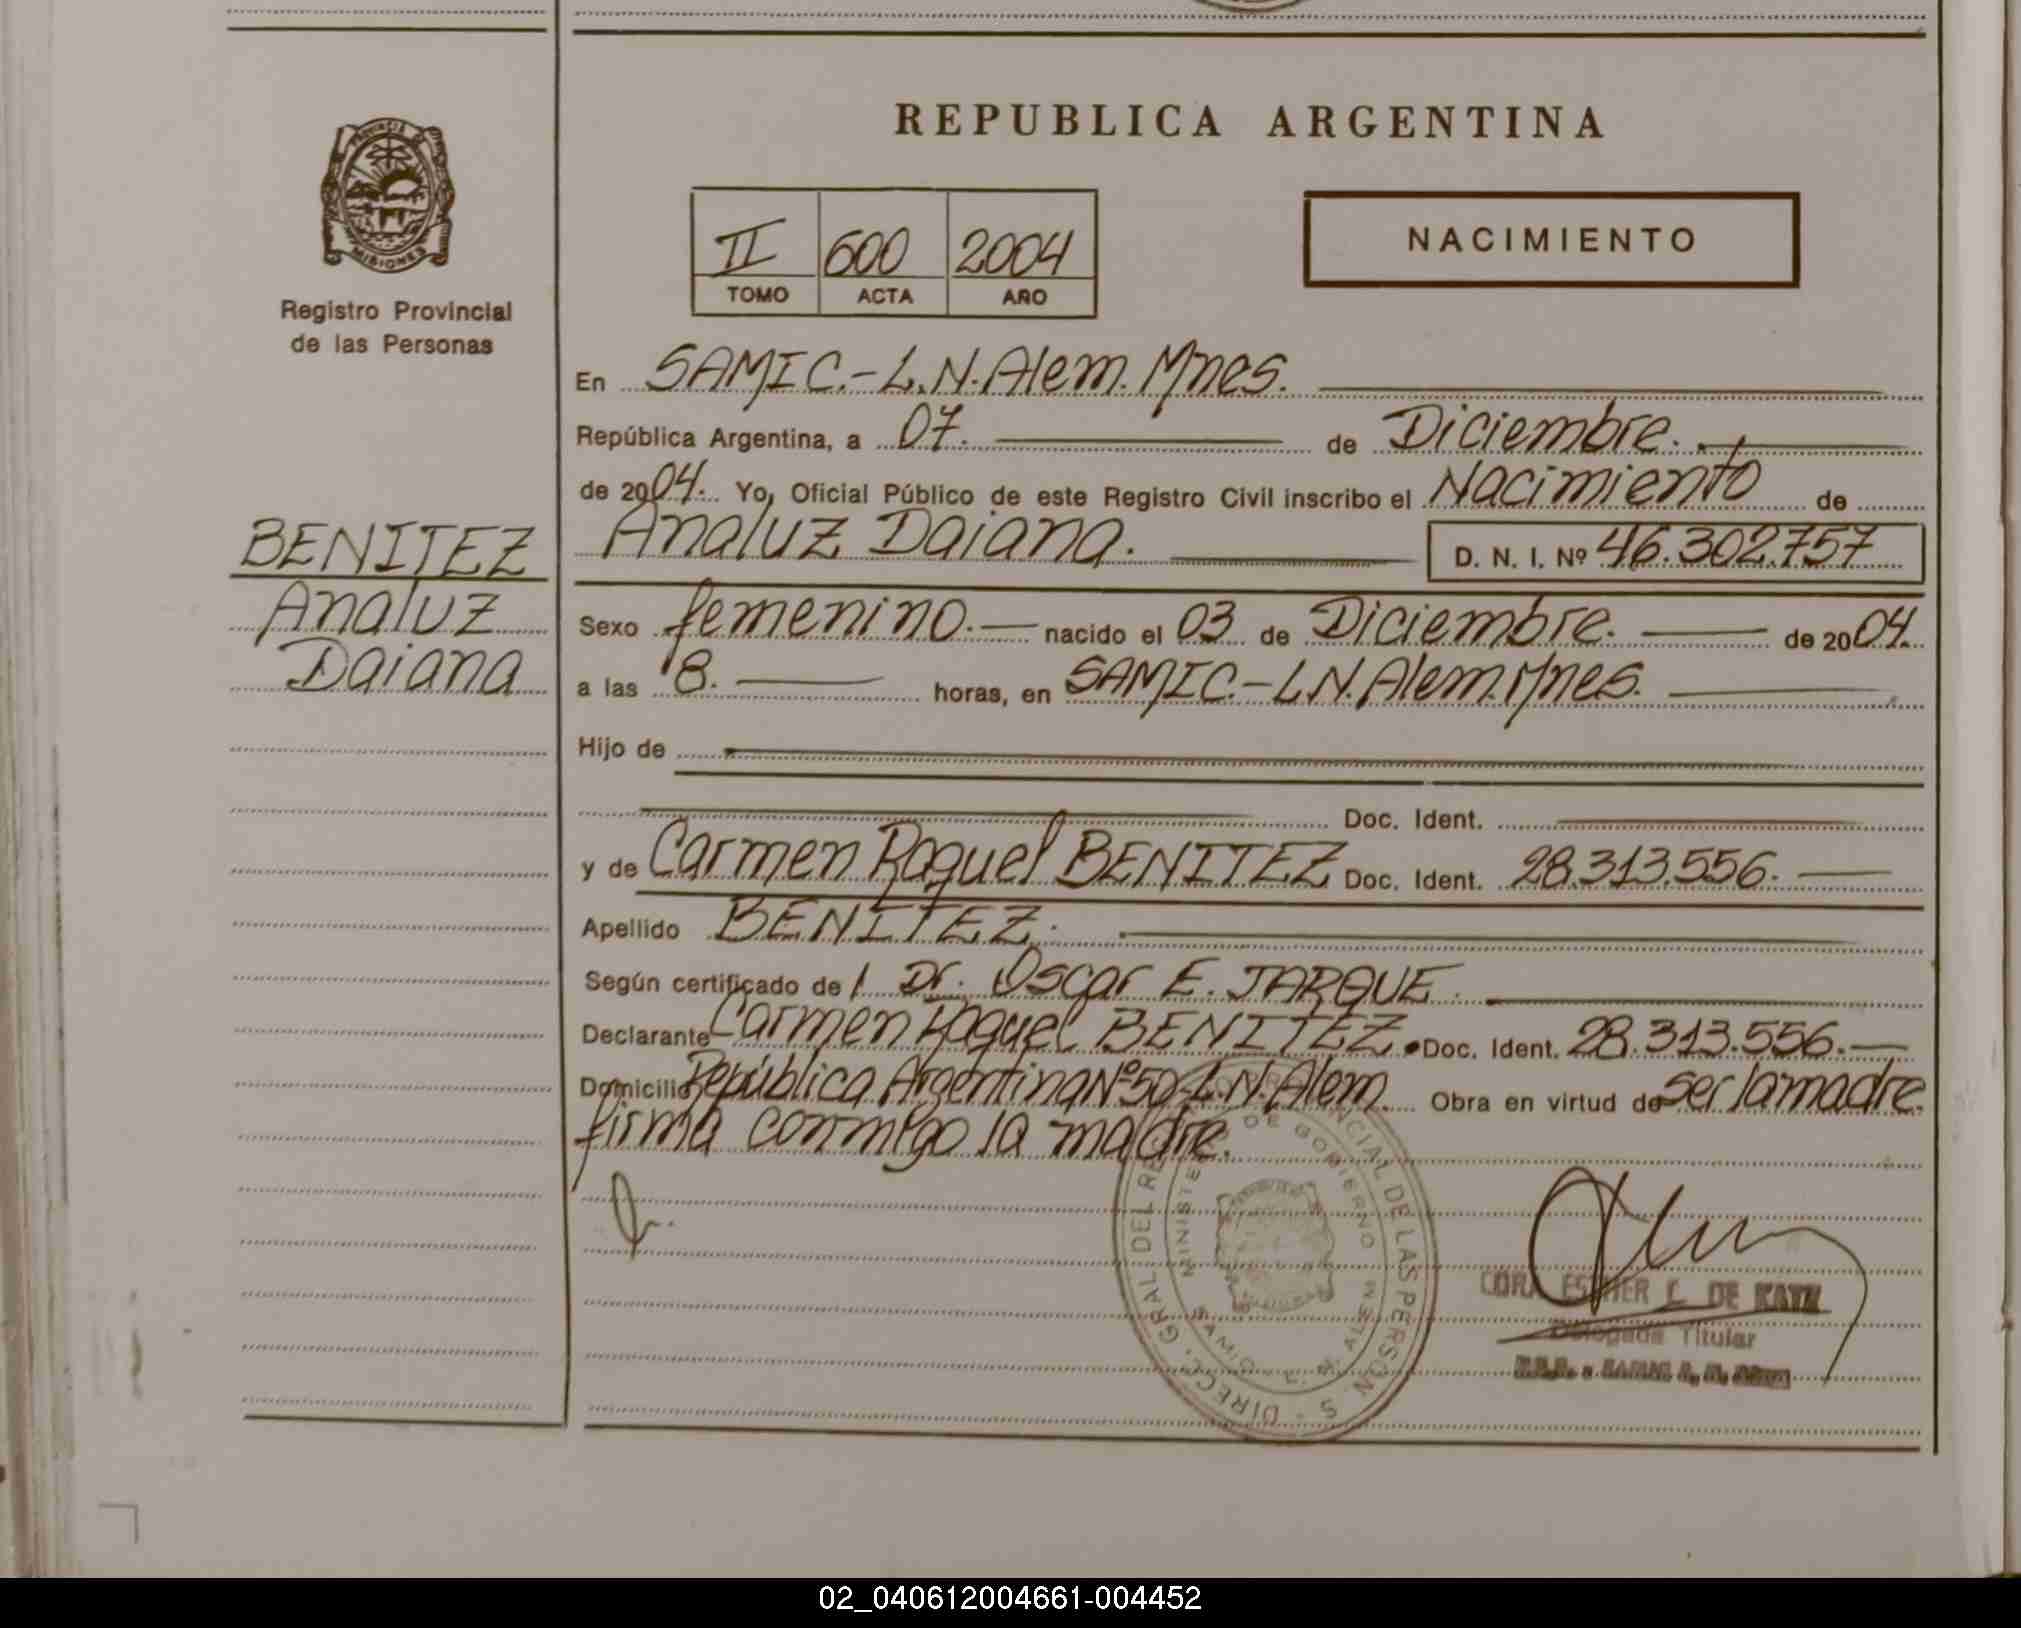 REPUBLICA ARGENTINA
PROVINCIA DE
MISIONES
Registro Provincial
de las Personas
II 600 2004
TOMO ACTA AÑO
NACIMIENTO
En SAMIC.-L.N.Alem.Mnes.
República Argentina, a 07. de Diciembre.
de 2004. Yo, Oficial Público de este Registro Civil inscribo el Nacimiento de
Analuz Daiana. D. N. I. Nº 46.302.757
BENITEZ
Analuz
Daiana
Sexo femenino.- nacido el 03 de Diciembre. de 2004.
a las 8. horas, en SAMIC.-L.N.Alem.Mnes.
Hijo de
Doc. Ident.
y de Carmen Raquel BENITEZ Doc. Ident. 28.313.556.
Apellido BENITEZ.
Según certificado de l Dr. Oscar E. JARQUE.
Declarante Carmen Raquel BENITEZ. Doc. Ident. 28.313.556.
Domicilio República Argentina Nº50-L.N.Alem. Obra en virtud de ser la madre.
firma conmigo la madre.
DIRECC. GRAL DEL DE LAS PERSONAS
DE GOBIERNO
SAMIC - L. N. ALEM
ESTHER DE KATZ
Delegada Titular
02_040612004661-004452